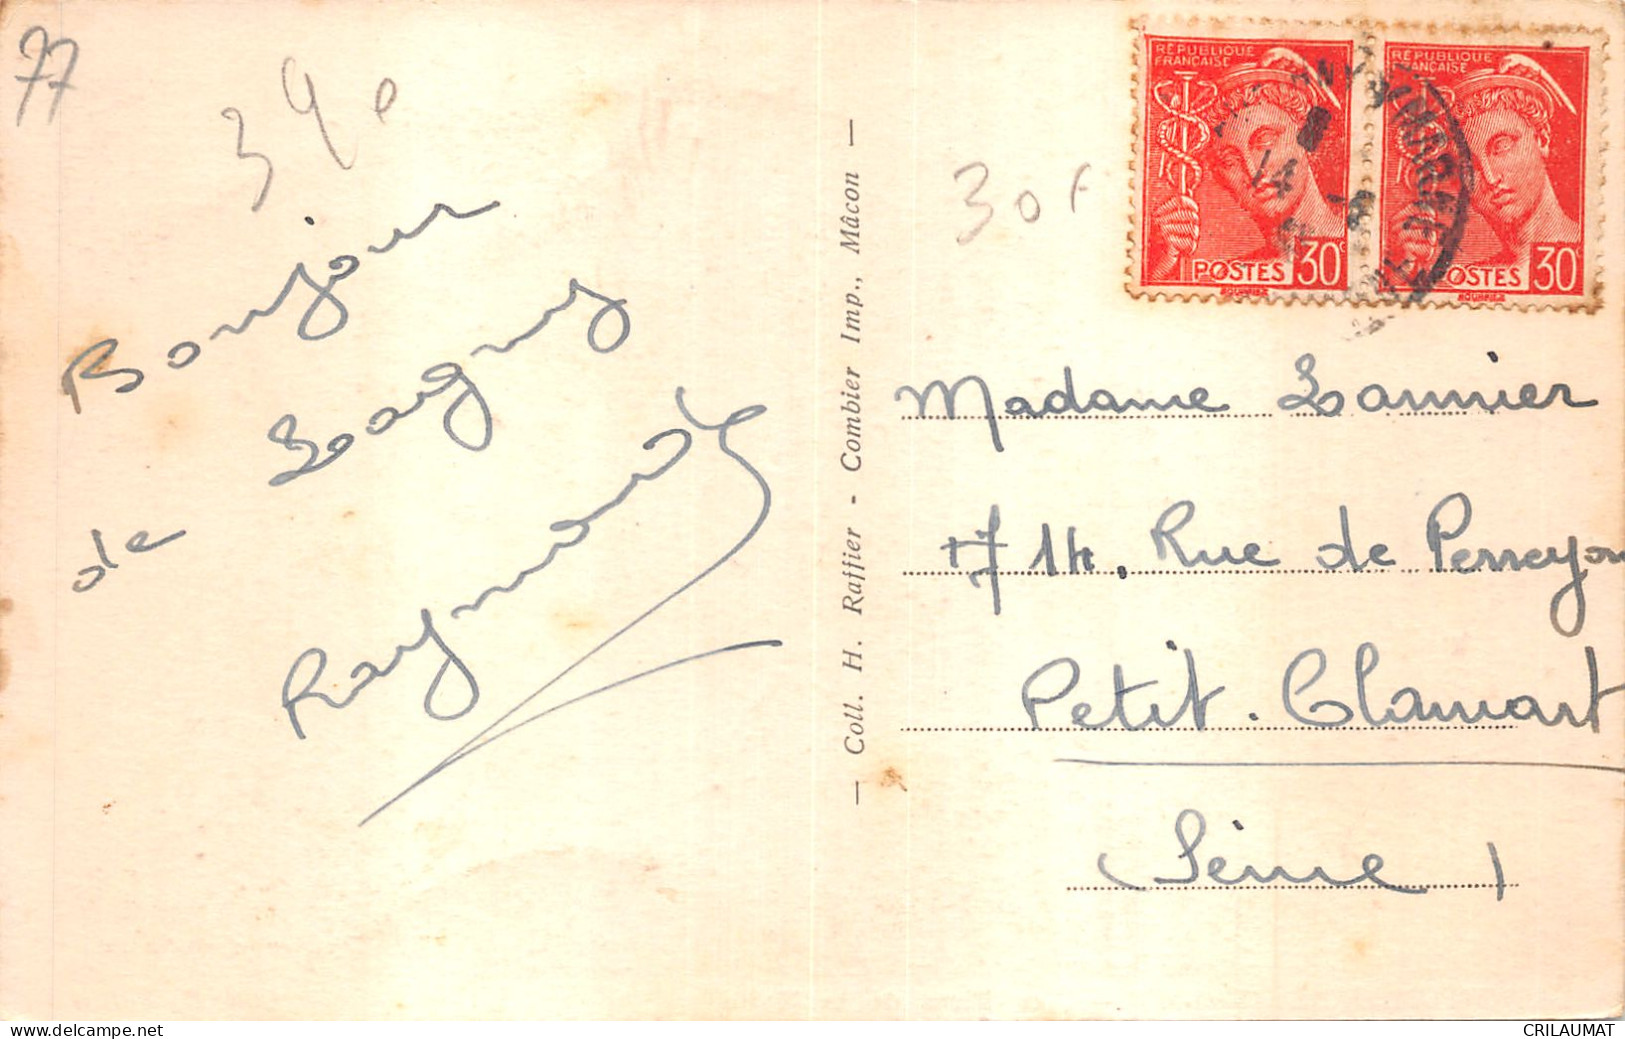 77
390
Bonjour
de Lagny
Raymond
— Coll. H. Raffier - Combier Imp., Mâcon —
30f
RÉPUBLIQUE
FRANÇAISE
POSTES 30c
RÉPUBLIQUE
FRANÇAISE
POSTES 30c
14
Madame Lannier
714, Rue de Perreyon
Petit-Clamart
(Seine)
delcampe.net
CRILAUMAT